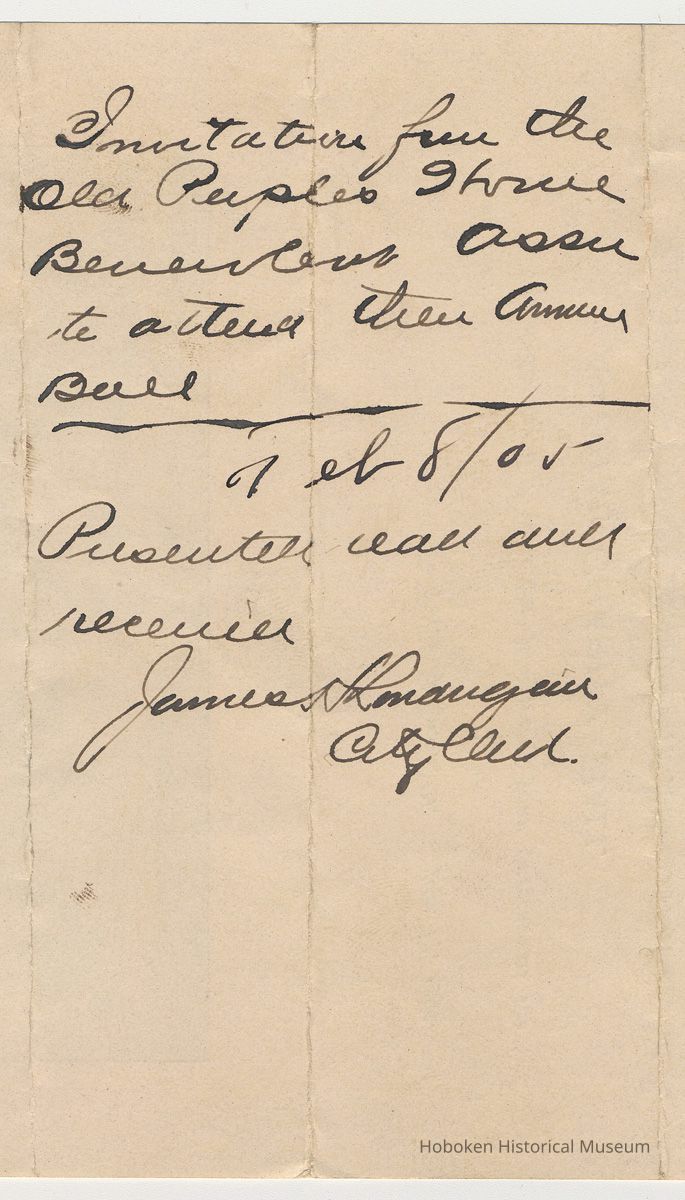 Invitation from the
Old Peoples Home
Benevolent Assn
to attend their Annual
Ball
Feb 8/05
Presented read and
received
James H Londrigan
City Clerk.
Hoboken Historical Museum